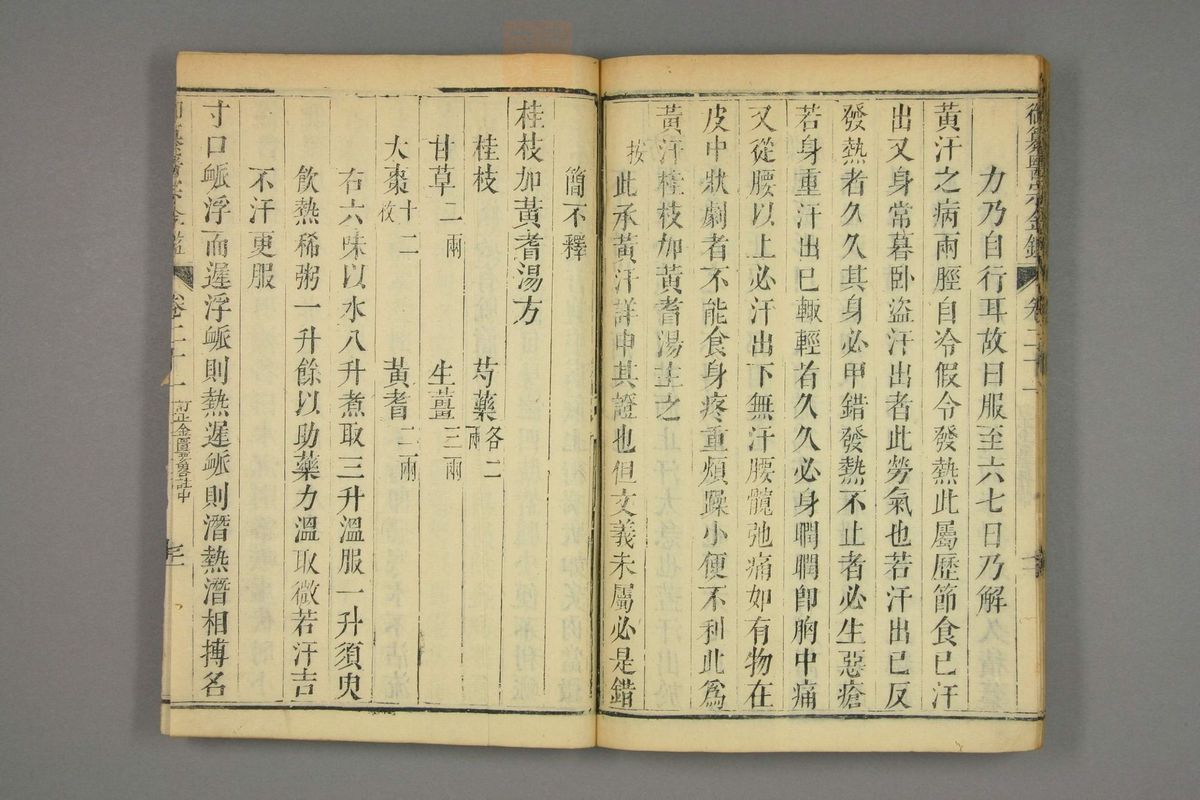 御纂醫宗金鑑 卷二十一
力乃自行耳故曰服至六七日乃解
黃汗之病兩脛自冷假令發熱此屬歷節食已汗
出又身常暮卧盜汗出者此勞氣也若汗出已反
發熱者久久其身必甲錯發熱不止者必生惡瘡
若身重汗出已輙輕者久久必身瞤瞤卽胸中痛
又從腰以上必汗出下無汗腰髖弛痛如有物在
皮中狀劇者不能食身疼重煩躁小便不利此爲
黃汗桂枝加黃耆湯主之
按此承黃汗詳申其證也但文義未屬必是錯
簡不釋
桂枝加黃耆湯方
桂枝 芍藥各二兩
甘草二兩 生薑三兩
大棗十二枚 黃耆二兩
右六味以水八升煮取三升溫服一升須臾
飲熱稀粥一升餘以助藥力溫取微若汗吉
不汗更服
寸口脈浮而遲浮脈則熱遲脈則潛熱潛相搏名
卷二十一 訂正金匱要畧註中 三